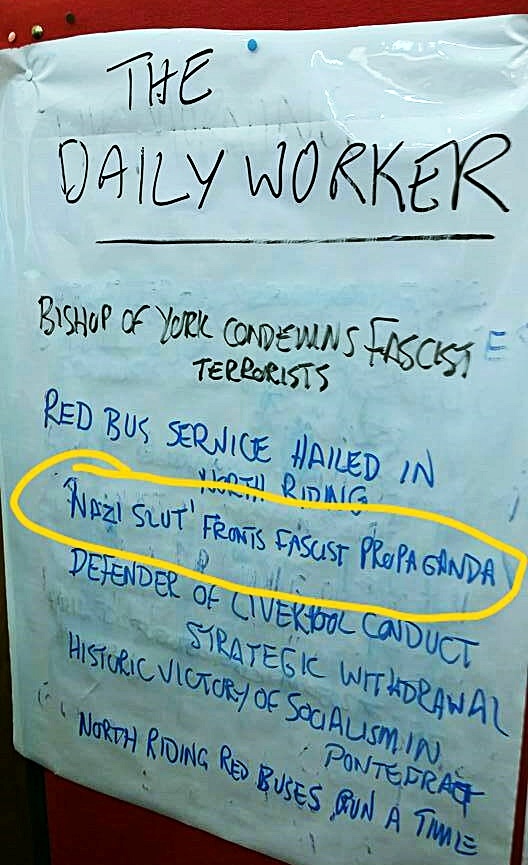 THE
DAILY WORKER
BISHOP OF YORK CONDEMNS FASCIST
TERRORISTS
RED BUS SERVICE HAILED IN
NORTH RIDING
'NAZI SLUT' FRONTS FASCIST PROPAGANDA
DEFENDER OF LIVERPOOL CONDUCT
STRATEGIC WITHDRAWAL
HISTORIC VICTORY OF SOCIALISM IN
PONTEFRACT
NORTH RIDING RED BUSES RUN A TIME